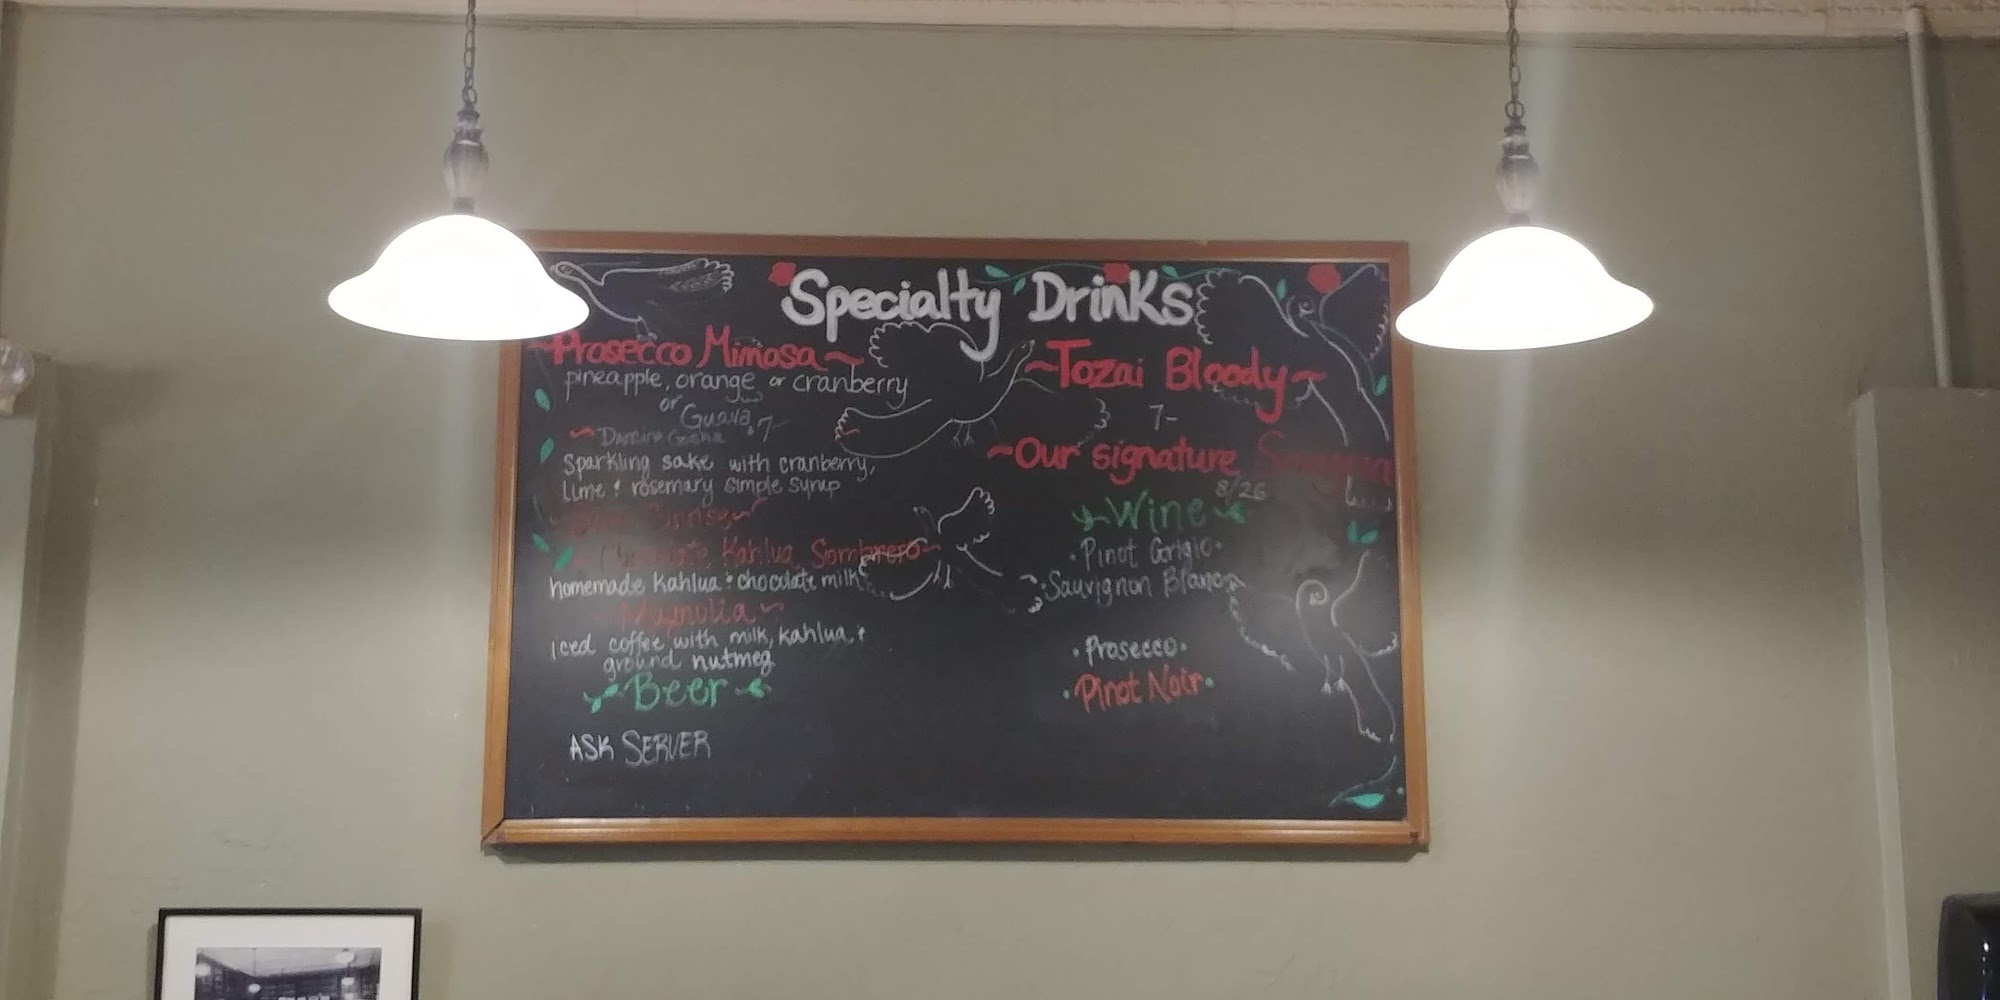 Specialty Drinks
~Prosecco Mimosa~
pineapple, orange or cranberry
or Guava
7-
Sparkling sake with cranberry,
lime + rosemary simple syrup
Sunrise~
Chocolate Kahlua Sombrero~
homemade kahlua + chocolate milk
~Magnolia~
iced coffee with milk, kahlua, +
ground nutmeg
Beer
ASK SERVER
~Tozai Bloody~
7-
~Our signature Sangria
8/26
Wine
·Pinot Grigio·
·Sauvignon Blanc
·Prosecco·
·Pinot Noir·